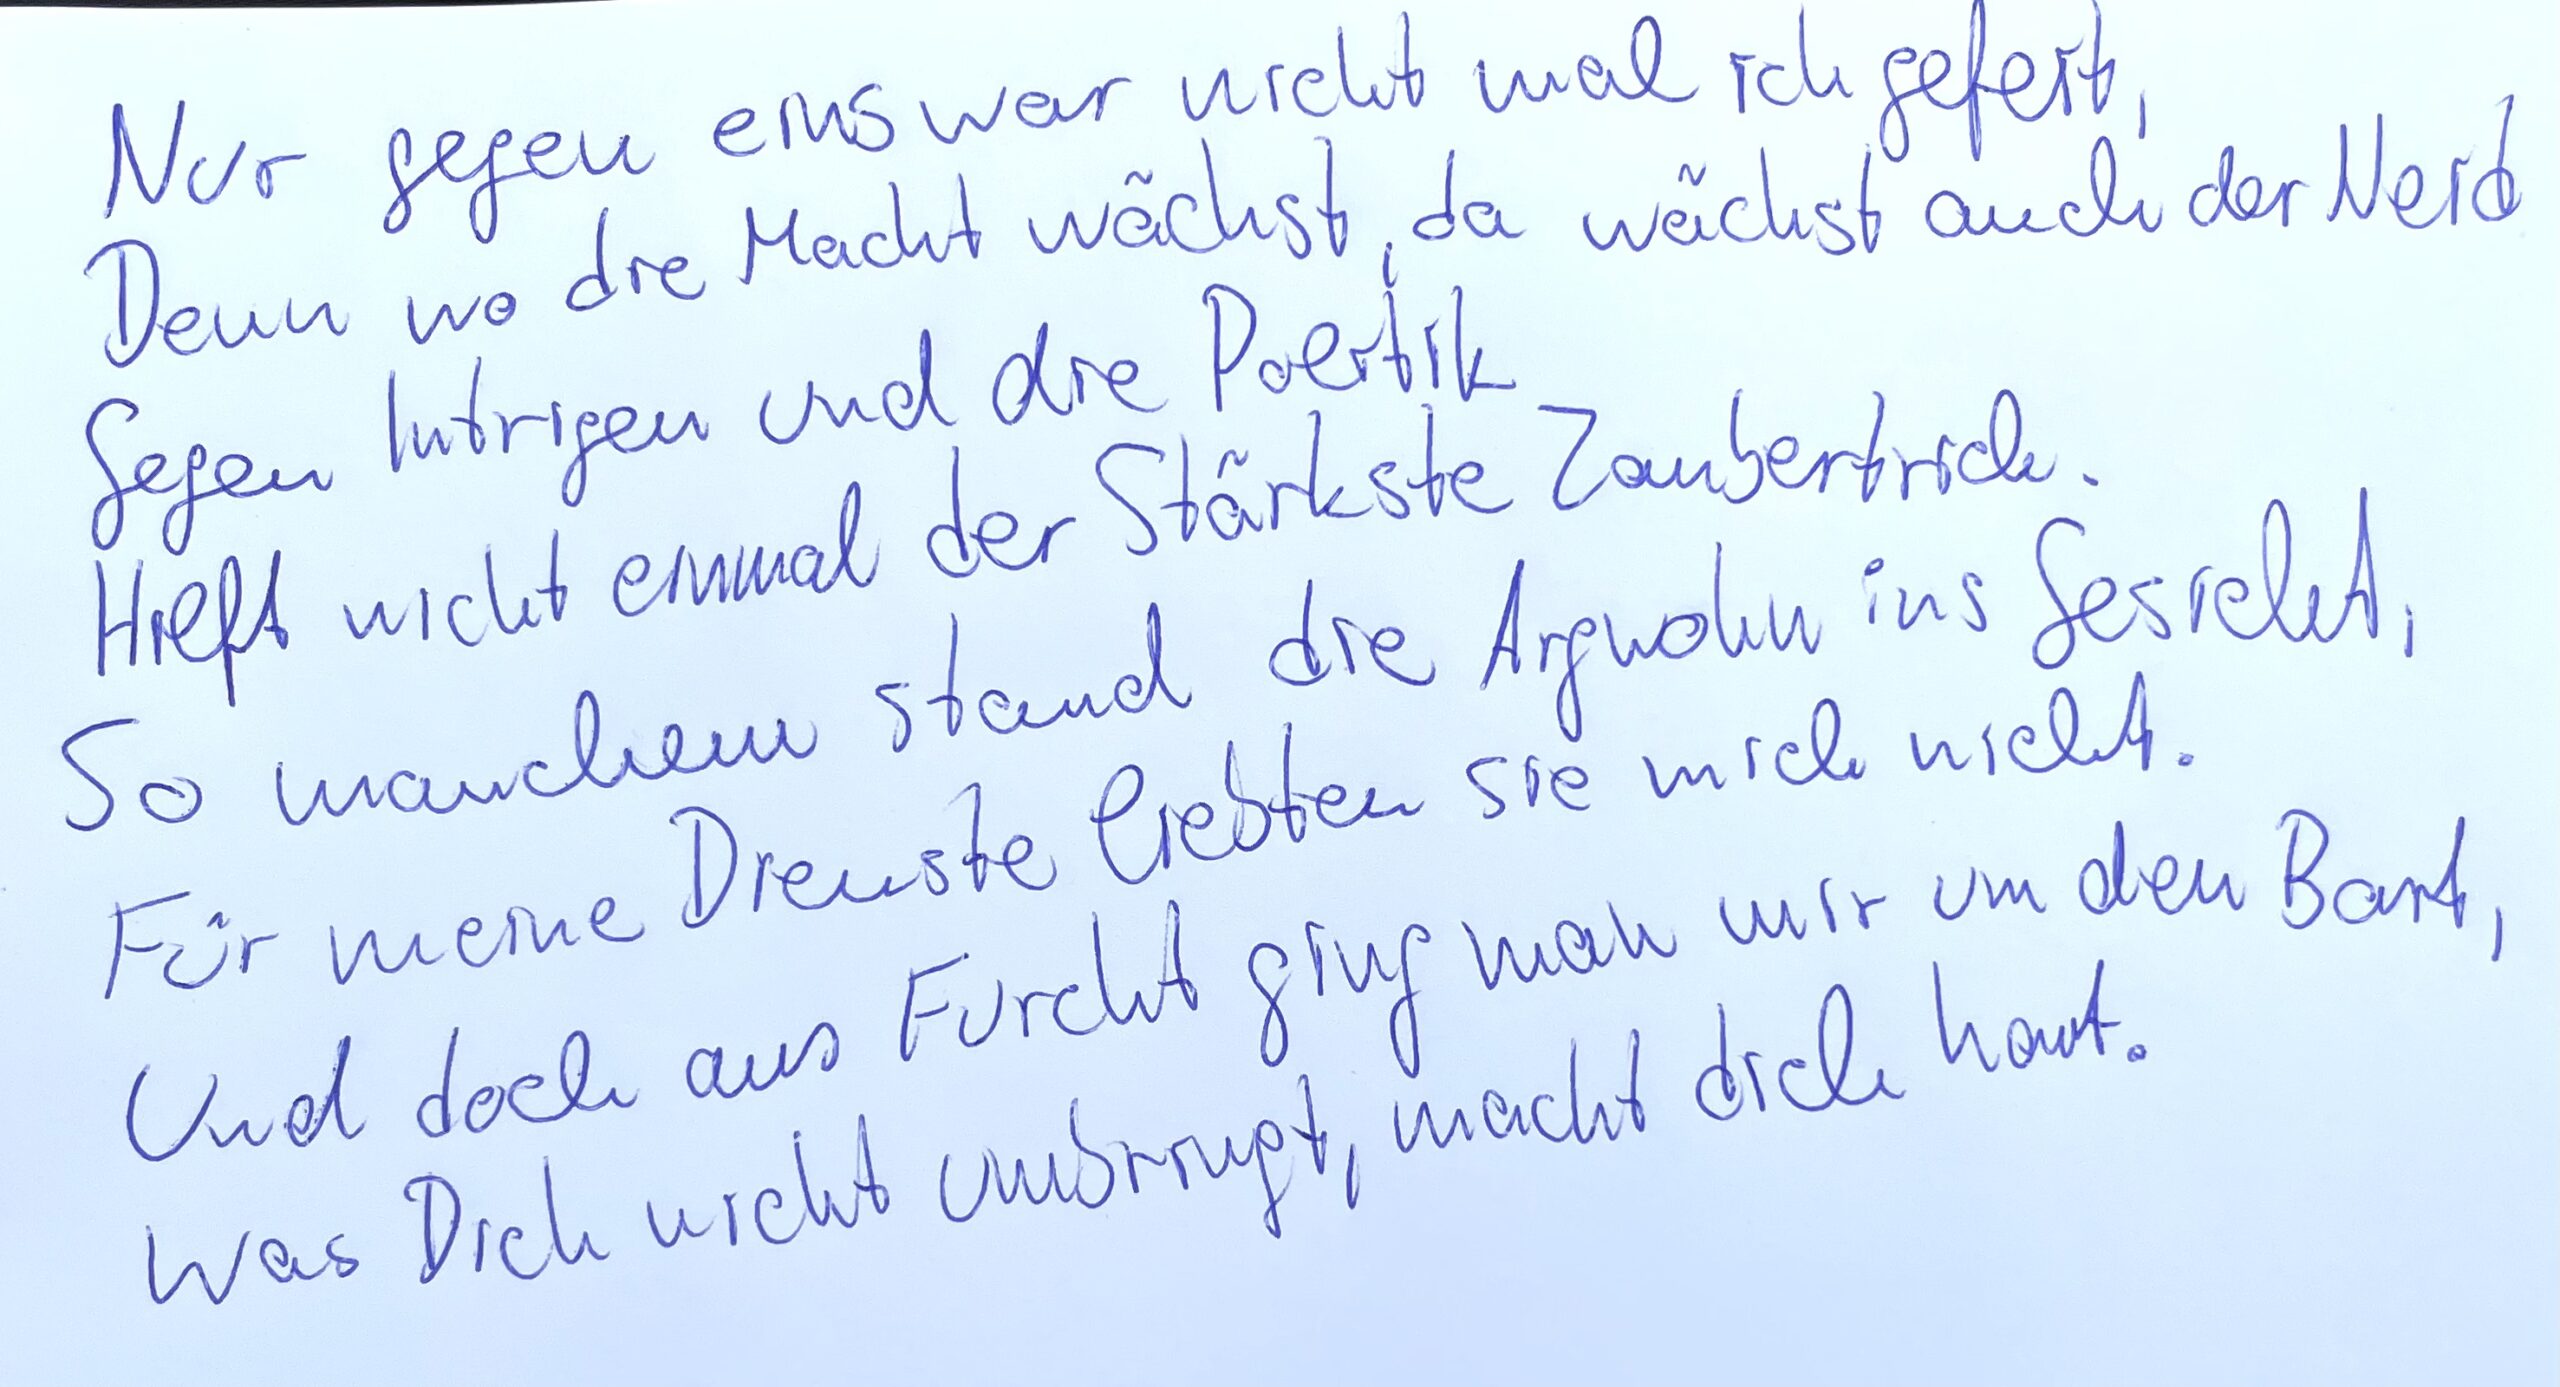 Nur gegen eins war nicht mal ich gefeit,
Denn wo die Macht wächst, da wächst auch der Neid
Gegen Intrigen und die Poeitik
Hielft nicht einmal der Stärkste Zaubertrick.
So manchem stand die Argwohn ins Gesicht,
Für meine Dienste liebten sie mich nicht.
Und doch aus Furcht ging man mir um den Bart,
Was Dich nicht umbringt, macht dich hart.